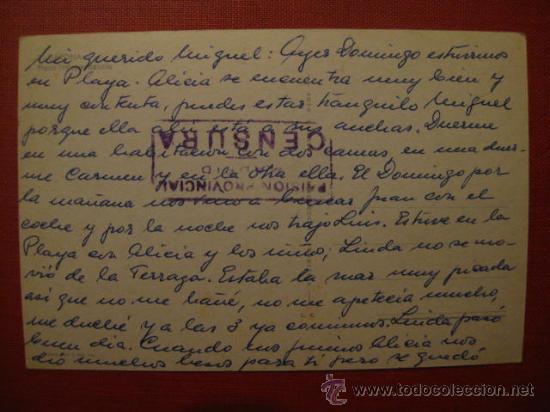 Mi querido Miguel: Ayer Domingo estuvimos
en Playa. Alicia se encuentra muy bien y
muy contenta, puedes estar tranquilo Miguel
porque ella allí está a sus anchas. Duerme
en una habitación con dos camas, en una duer-
me Carmen y en la otra ella. El Domingo por
la mañana nos vino a buscar Juan con el
coche y por la noche nos trajo Luis. Estuve en la
Playa con Alicia y los niños, Linda no se mo-
vió de la Terraza. Estaba la mar muy picada
así que no me bañé, no me apetecía mucho,
me duché y a las 3 ya comimos. Linda pasó
buen día. Cuando nos fuimos Alicia nos
dió muchos besos para ti pero se quedó
PRISION PROVINCIAL
CENSURA
todocoleccion
www.todocoleccion.net